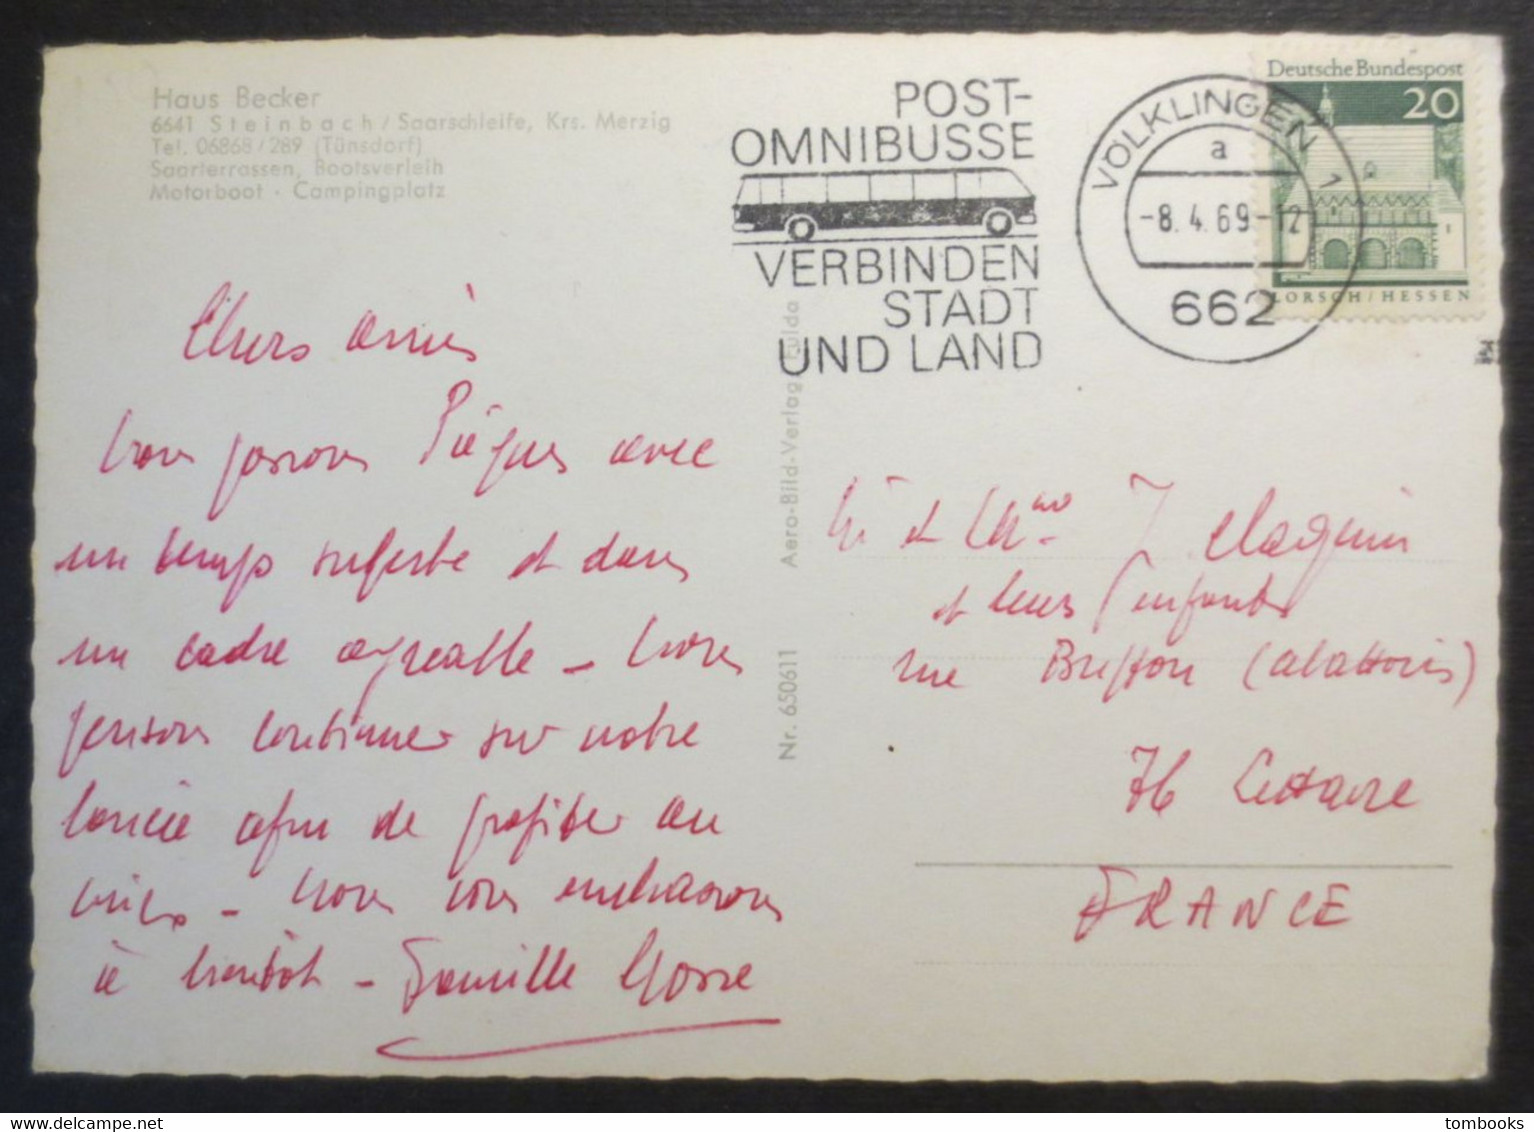 Haus Becker
6641 Steinbach / Saarschleife, Krs. Merzig
Tel. 06868 / 289 (Tünsdorf)
Saarterrassen, Bootsverleih
Motorboot · Campingplatz
POST-
OMNIBUSSE
VERBINDEN
STADT
UND LAND
VÖLKLINGEN 1
a
-8.4.69-12
662
Deutsche Bundespost
20
LORSCH / HESSEN
Chers amis
Nous passons Pâques avec
un temps superbe et dans
un cadre agréable - Nous
pensons continuer sur notre
lancée afin de profiter au
mieux - Nous vous embrassons
à bientôt - Famille
Nr. 650611 Aero-Bild-Verlag Fulda
Mr et Mme J
et leurs enfants
rue Buffon (abattoirs)
76
FRANCE
tombooks